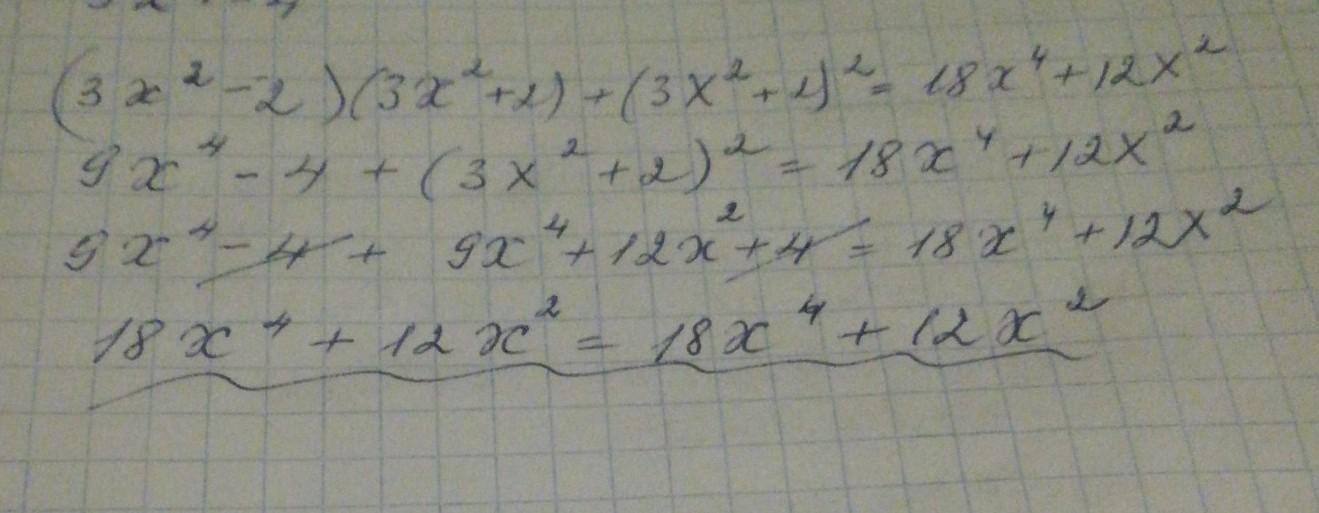 (3x² - 2)(3x² + 2) + (3x² + 2)² = 18x⁴ + 12x²
9x⁴ - 4 + (3x² + 2)² = 18x⁴ + 12x²
9x⁴ - 4 + 9x⁴ + 12x² + 4 = 18x⁴ + 12x²
18x⁴ + 12x² = 18x⁴ + 12x²